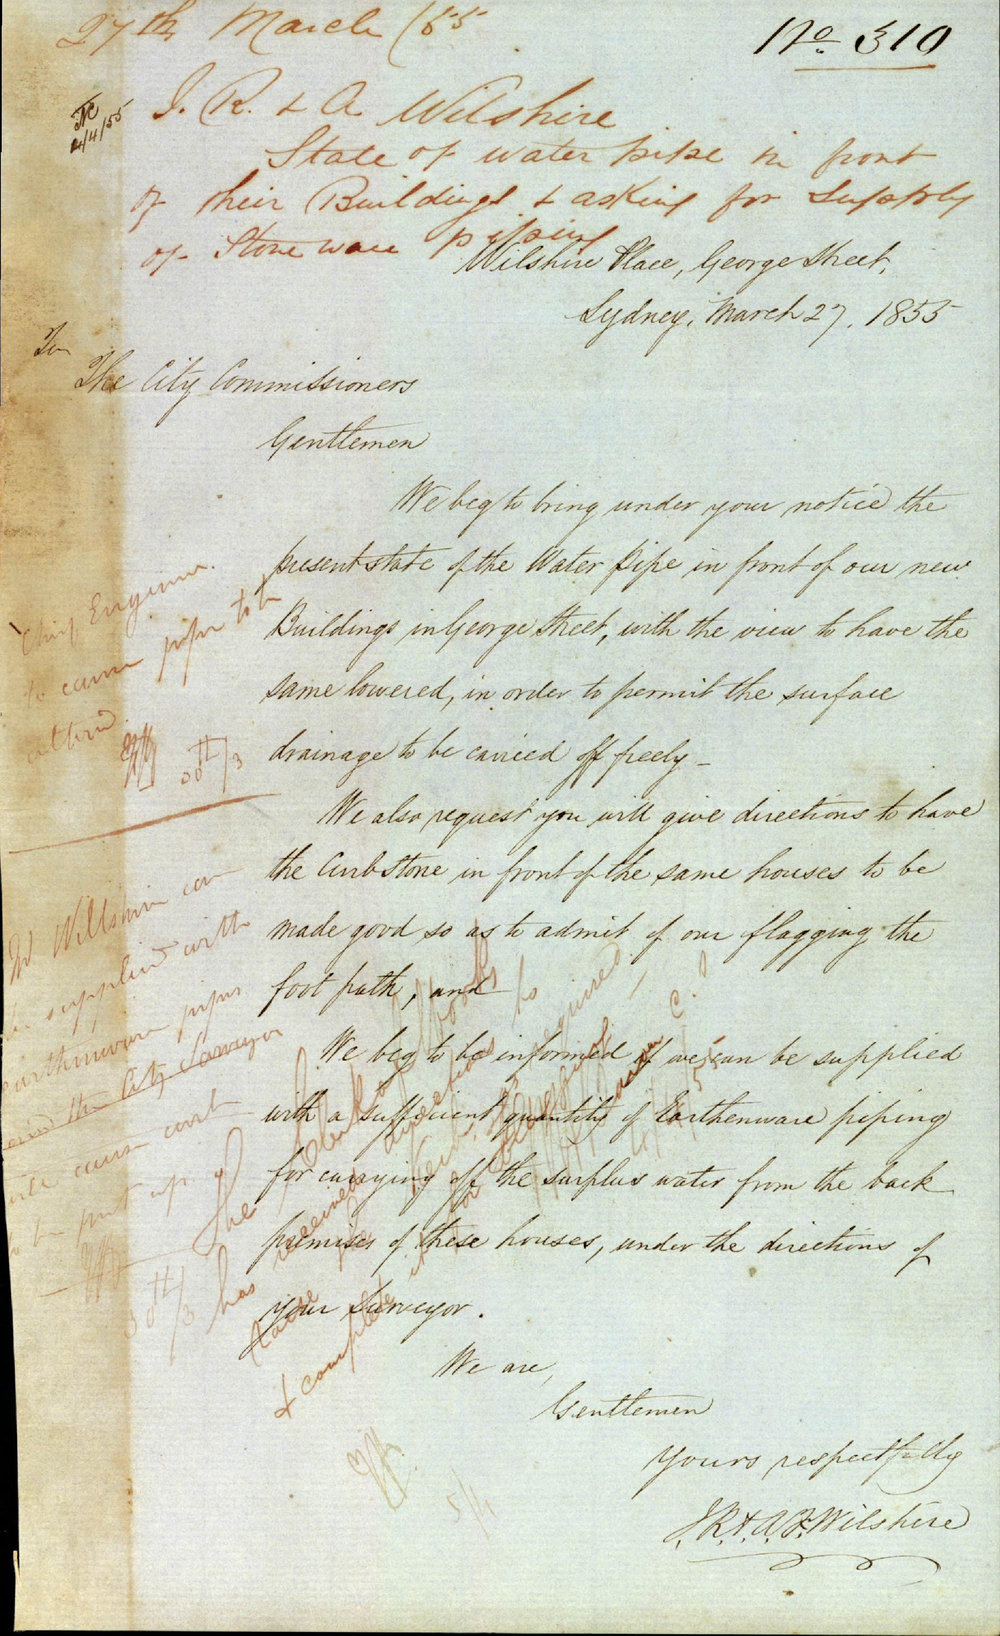 27th March /55
No. 310
2/4/55
J. R. & A. Wilshire
State of water pipe in front
of their Buildings & asking for supply
of Stone ware piping
Wilshire Place, George Street,
Sydney, March 27, 1855
To
The City Commissioners
Gentlemen
We beg to bring under your notice the
present state of the Water Pipe in front of our new
Buildings in George Street, with the view to have the
same lowered, in order to permit the surface
drainage to be carried off freely –
We also request you will give directions to have
the Curb Stone in front of the same houses to be
made good so as to admit of our flagging the
foot path, and
We beg to be informed if we can be supplied
with a sufficient quantity of Earthenware piping
for carrying off the surplus water from the back
premises of these houses, under the directions of
your Surveyor.
We are,
Gentlemen
Yours respectfully
J. R. & A. F. Wilshire
Chief Engineer
to cause pipe to be
altered
30th/3
Willshire can
be supplied with
earthenware pipes
and the City Surveyor
will cause
to be put up
30th/3
The Clerk of Works
has received directions to
& complete it
5/4